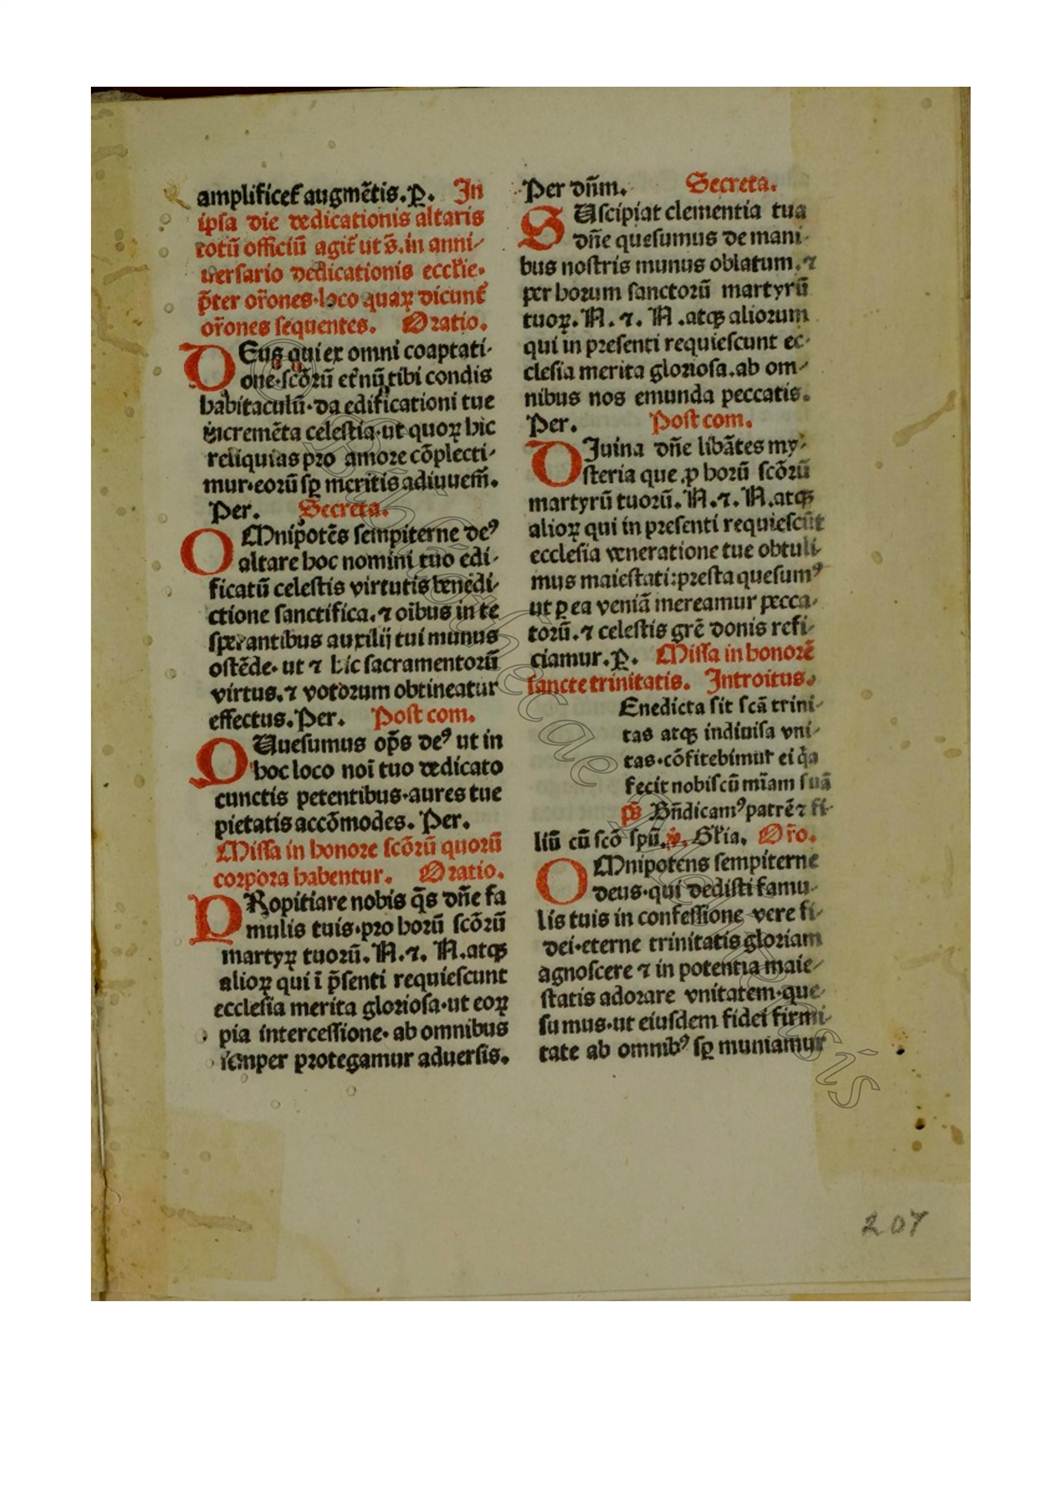 amplificet᷑ augmētis. ꝑ. In
ipsa die dedicationis altaris
totū officiū agit᷑ ut s̄. in anni-
versario dedicationis eccl'ie.
p̄ter or̄ones. loco quaꝝ dicunt᷑
or̄ones sequentes. Oratio.
DEus qui ex omni coaptati-
one. scōrū et᷑nū tibi condis
habitaculū. da edificationi tue
incremēta celestia. ut quoꝝ hic
reliquias pro amore cōplecti-
mur. eorū sꝑ meritis adiuuem̄.
Per. Secreta.
OMnipotēs sempiterne deꝰ
altare hoc nomini tuo edi-
ficatū celestis virtutis benedi-
ctione sanctifica. ⁊ oībus in te
sperantibus auxilij tui munus
ostēde. ut ⁊ hic sacramentorū
virtus. ⁊ votorum obtineatur
effectus. Per. Post com.
QUesumus op̄s deꝰ ut in
hoc loco noī tuo dedicato
cunctis petentibus. aures tue
pietatis accōmodes. Per.
Missa in honore scōrū quorū
corpora habentur. Oratio.
PRopitiare nobis q̄s dn̄e fa
mulis tuis. pro horū scōrū
martyꝝ tuorū. N. ⁊. N. atqꝫ
alioꝝ qui ī p̄senti requiescunt
ecclesia merita gloriosa. ut eoꝝ
pia intercessione. ab omnibus
semper protegamur aduersis.
Per dn̄m. Secreta.
SUscipiat clementia tua
dn̄e quesumus de mani
bus nostris munus oblatum. ⁊
per horum sanctorū martyrū
tuoꝝ. N. ⁊. N. atqꝫ aliorum
qui in presenti requiescunt ec-
clesia merita gloriosa. ab om-
nibus nos emunda peccatis.
Per. Post com.
DIuina dn̄e libātes my-
steria que ꝓ horū scōrū
martyrū tuorū. N. ⁊. N. atqꝫ
alioꝝ qui in presenti requiescūt
ecclesia veneratione tue obtuli-
mus maiestati: presta quesumꝰ
ut ꝑ ea veniā mereamur pecca-
torū. ⁊ celestis grē donis refi-
ciamur. ꝑ. Missa in honorē
sancte trinitatis. Introitus.
Enedicta sit scā trini-
tas atqꝫ indiuisa vni-
tas. cōfitebimur ei q̄a
fecit nobiscū mīam suā
ps̄ Bn̄dicamꝰ patrē ⁊ fi-
liū cū scō spū. ꝟ. Gl'ia. Or̄o.
OMnipotens sempiterne
deus. qui dedisti famu-
lis tuis in confessione vere fi-
dei. eterne trinitatis gloriam
agnoscere ⁊ in potentia maie-
statis adorare vnitatem. que-
sumus. ut eiusdem fidei firmi-
tate ab omnibꝰ sꝑ muniamur
207